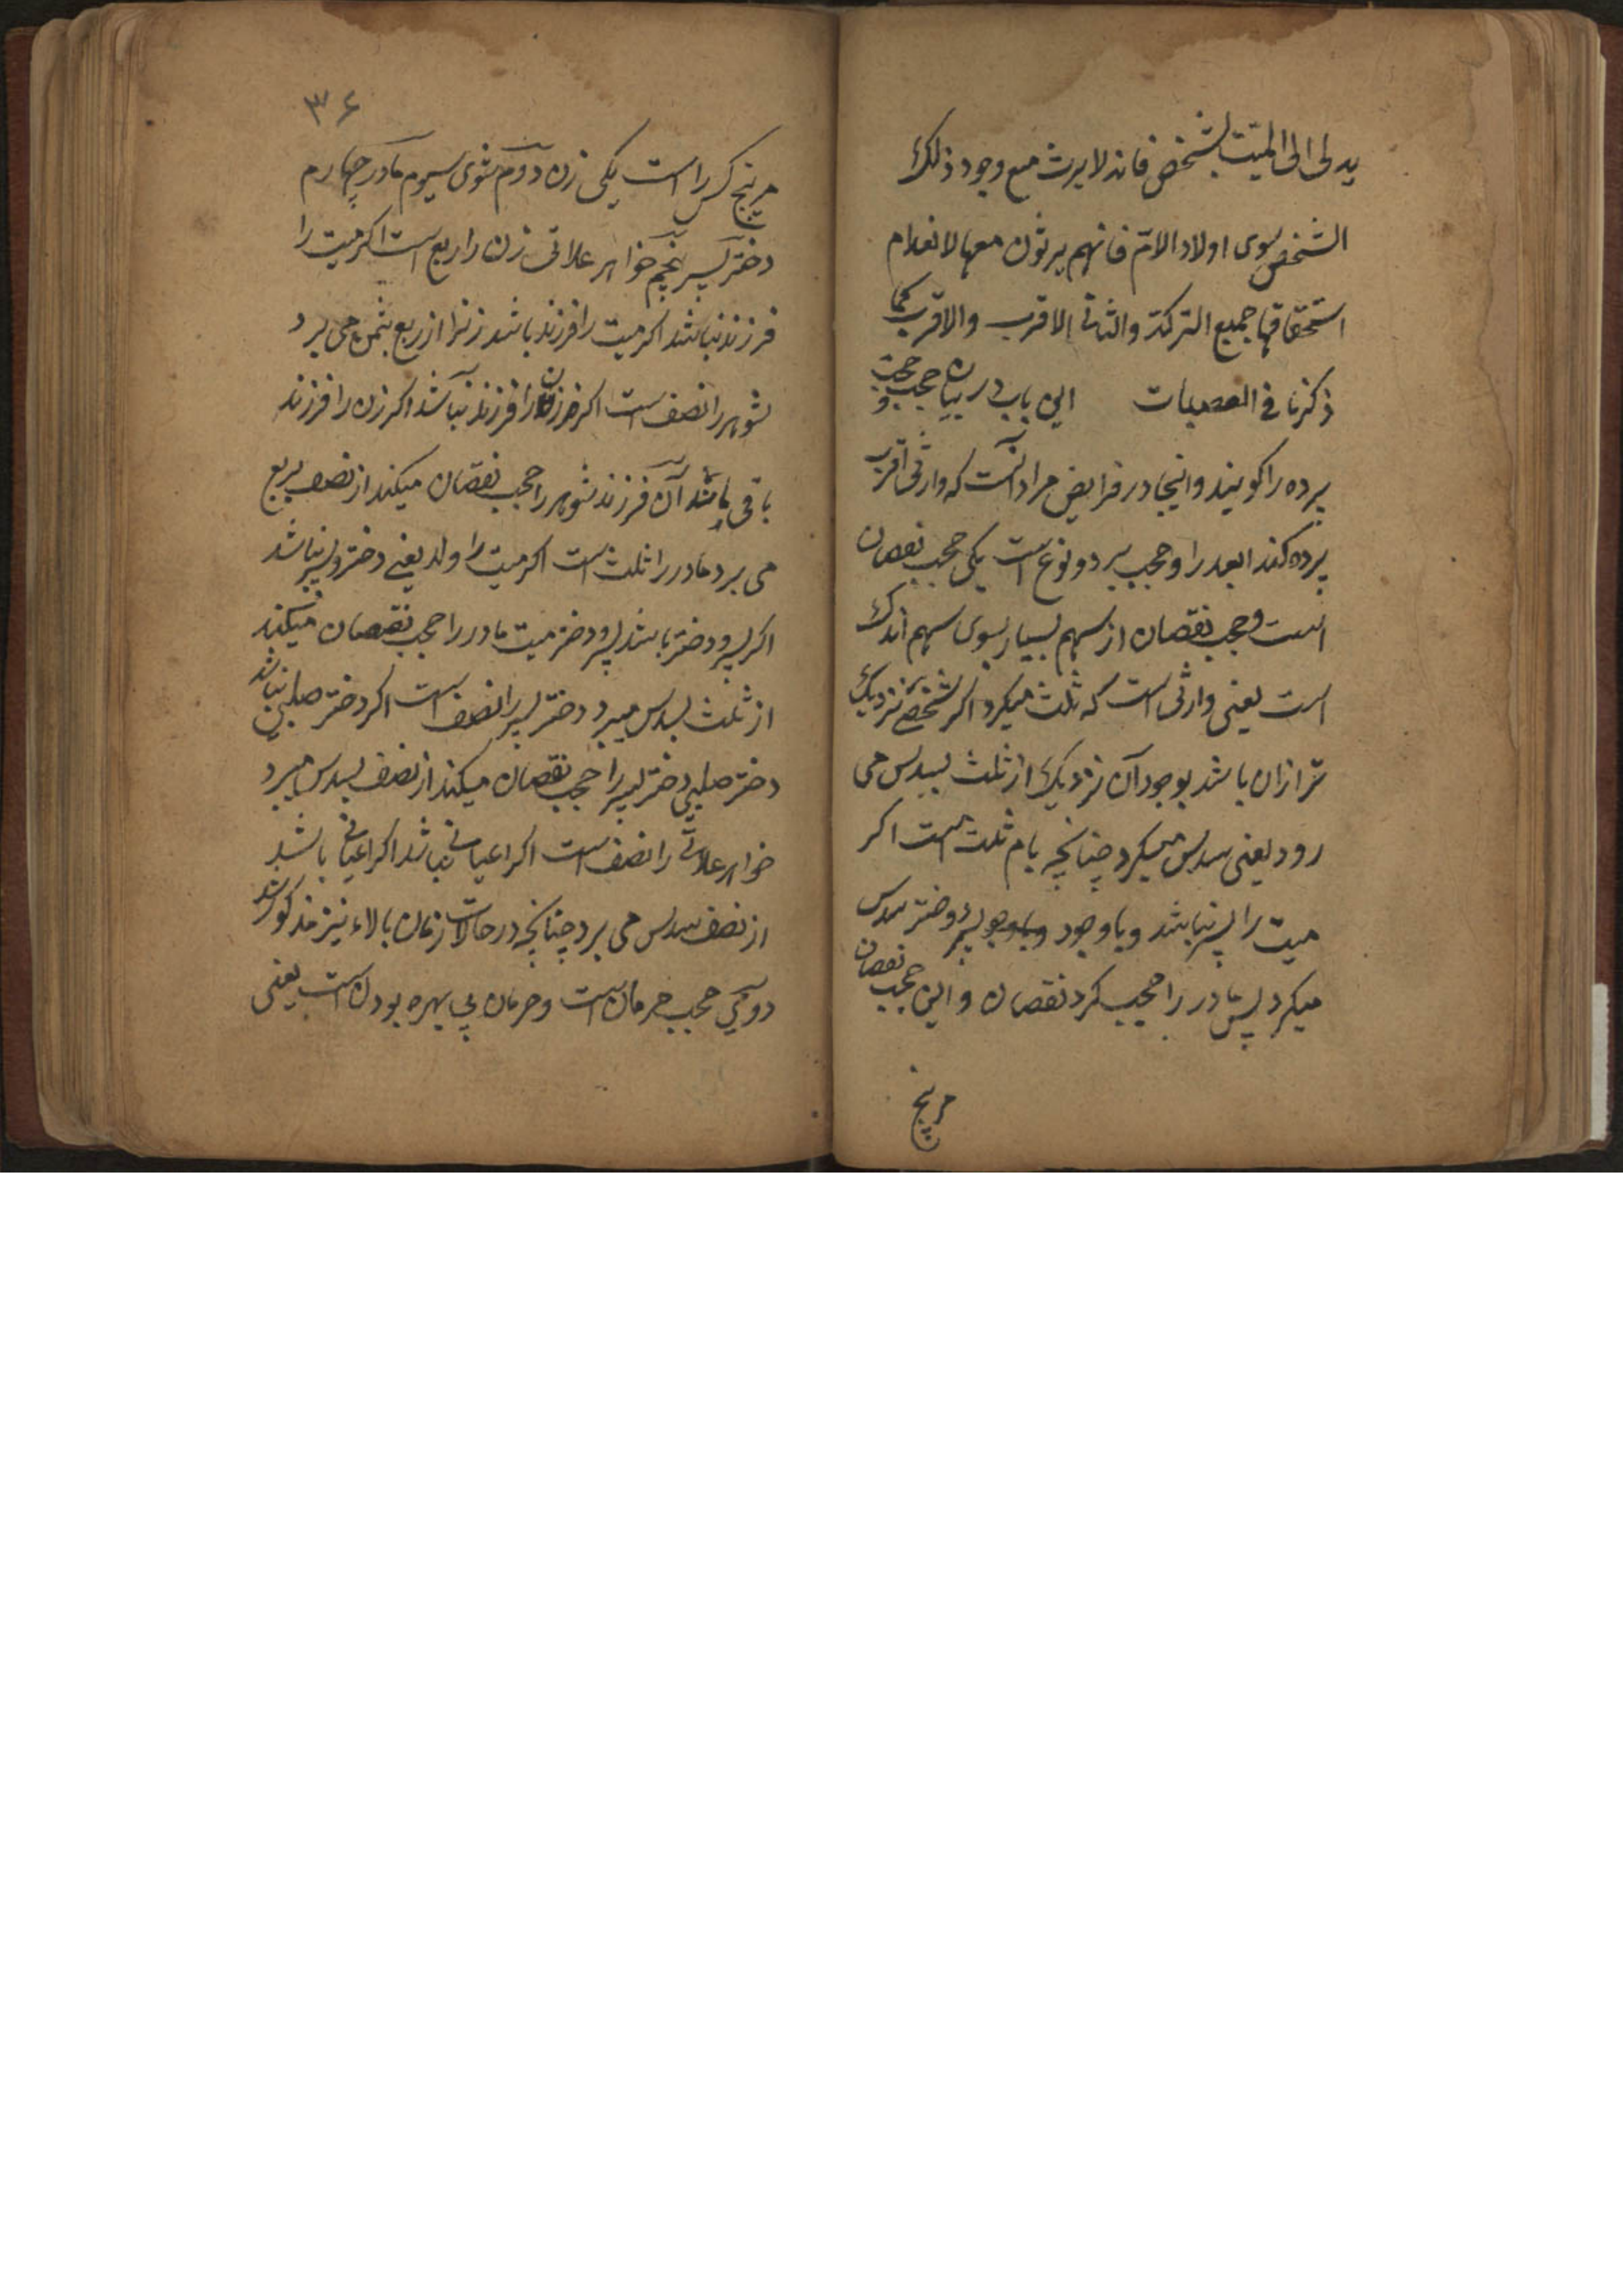 یدلی الی المیت بشخص فانه لا یرث مع وجود ذلک
الشخص سوی اولاد الام فانهم یرثون معها لانعدام
استحقاقها جمیع الترکة والثانی الاقرب والاقرب کما
ذکرنا فی العصبات این باب در بیان حجب و حجب
پرده را کویند واینجا در فرایض مراد آنست که وارثی اقرب
پرده کند ابعد را وحجب بر دو نوع است یکی حجب نقصان
است وحجب نقصان از سهم بسیار بسوی سهم اندک
است یعنی وارثی است که ثلث میکرد اکر شخصی نزدیک
تر ازان باشد بوجود آن نزدیک از ثلث بسدس می
رود یعنی سدس میکرد چنانچه بام ثلث است اکر
میت را پسر نباشد وبا وجود پسر ودختر سدس
میکرد پس مادر را حجب کرد نقصان و این حجب نقصان
مر پنج
۳۶
مر پنج کس را است یکی زن دوم شوی سیوم مادر چهارم
دختر پسر پنجم خواهر علاتی زن را ربع است اکر میت را
فرزند نباشد اکر میت را فرزند باشد زنرا از ربع بثمن می برد
شوهر را نصف است اکر مر زن را فرزند نباشد اکر زن را فرزند
باقی باشد آن فرزند شوهر را حجب نقصان میکند از نصف بربع
می برد مادر را ثلث است اکر میت را ولد یعنی دختر و پسر نباشد
اکر پسر و دختر باشد پسر و دختر میت مادر را حجب نقصان میکند
از ثلث بسدس میبرد دختر پسر را نصف است اکر دختر صلبی نباشد
دختر صلبی دختر پسر را حجب نقصان میکند از نصف بسدس میبرد
خواهر علاتی را نصف است اکر اعیانی نباشد اکر اعیانی باشد
از نصف سدس می برد چنانچه در حالات زنان بالاء نیز مذکور شد
دویمی حجب حرمان است وحرمان بی بهره بودن است یعنی